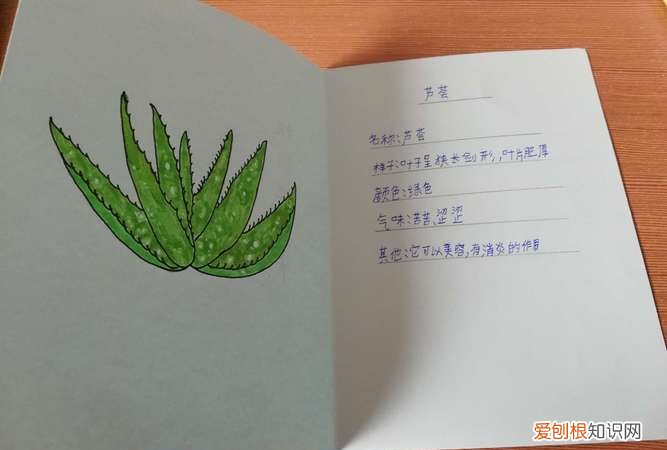 芦荟
名称:芦荟
样子:叶子呈狭长剑形,叶片肥厚
颜色:绿色
气味:苦苦、涩涩
其他:它可以美容,有消炎的作用
爱刨根知识网